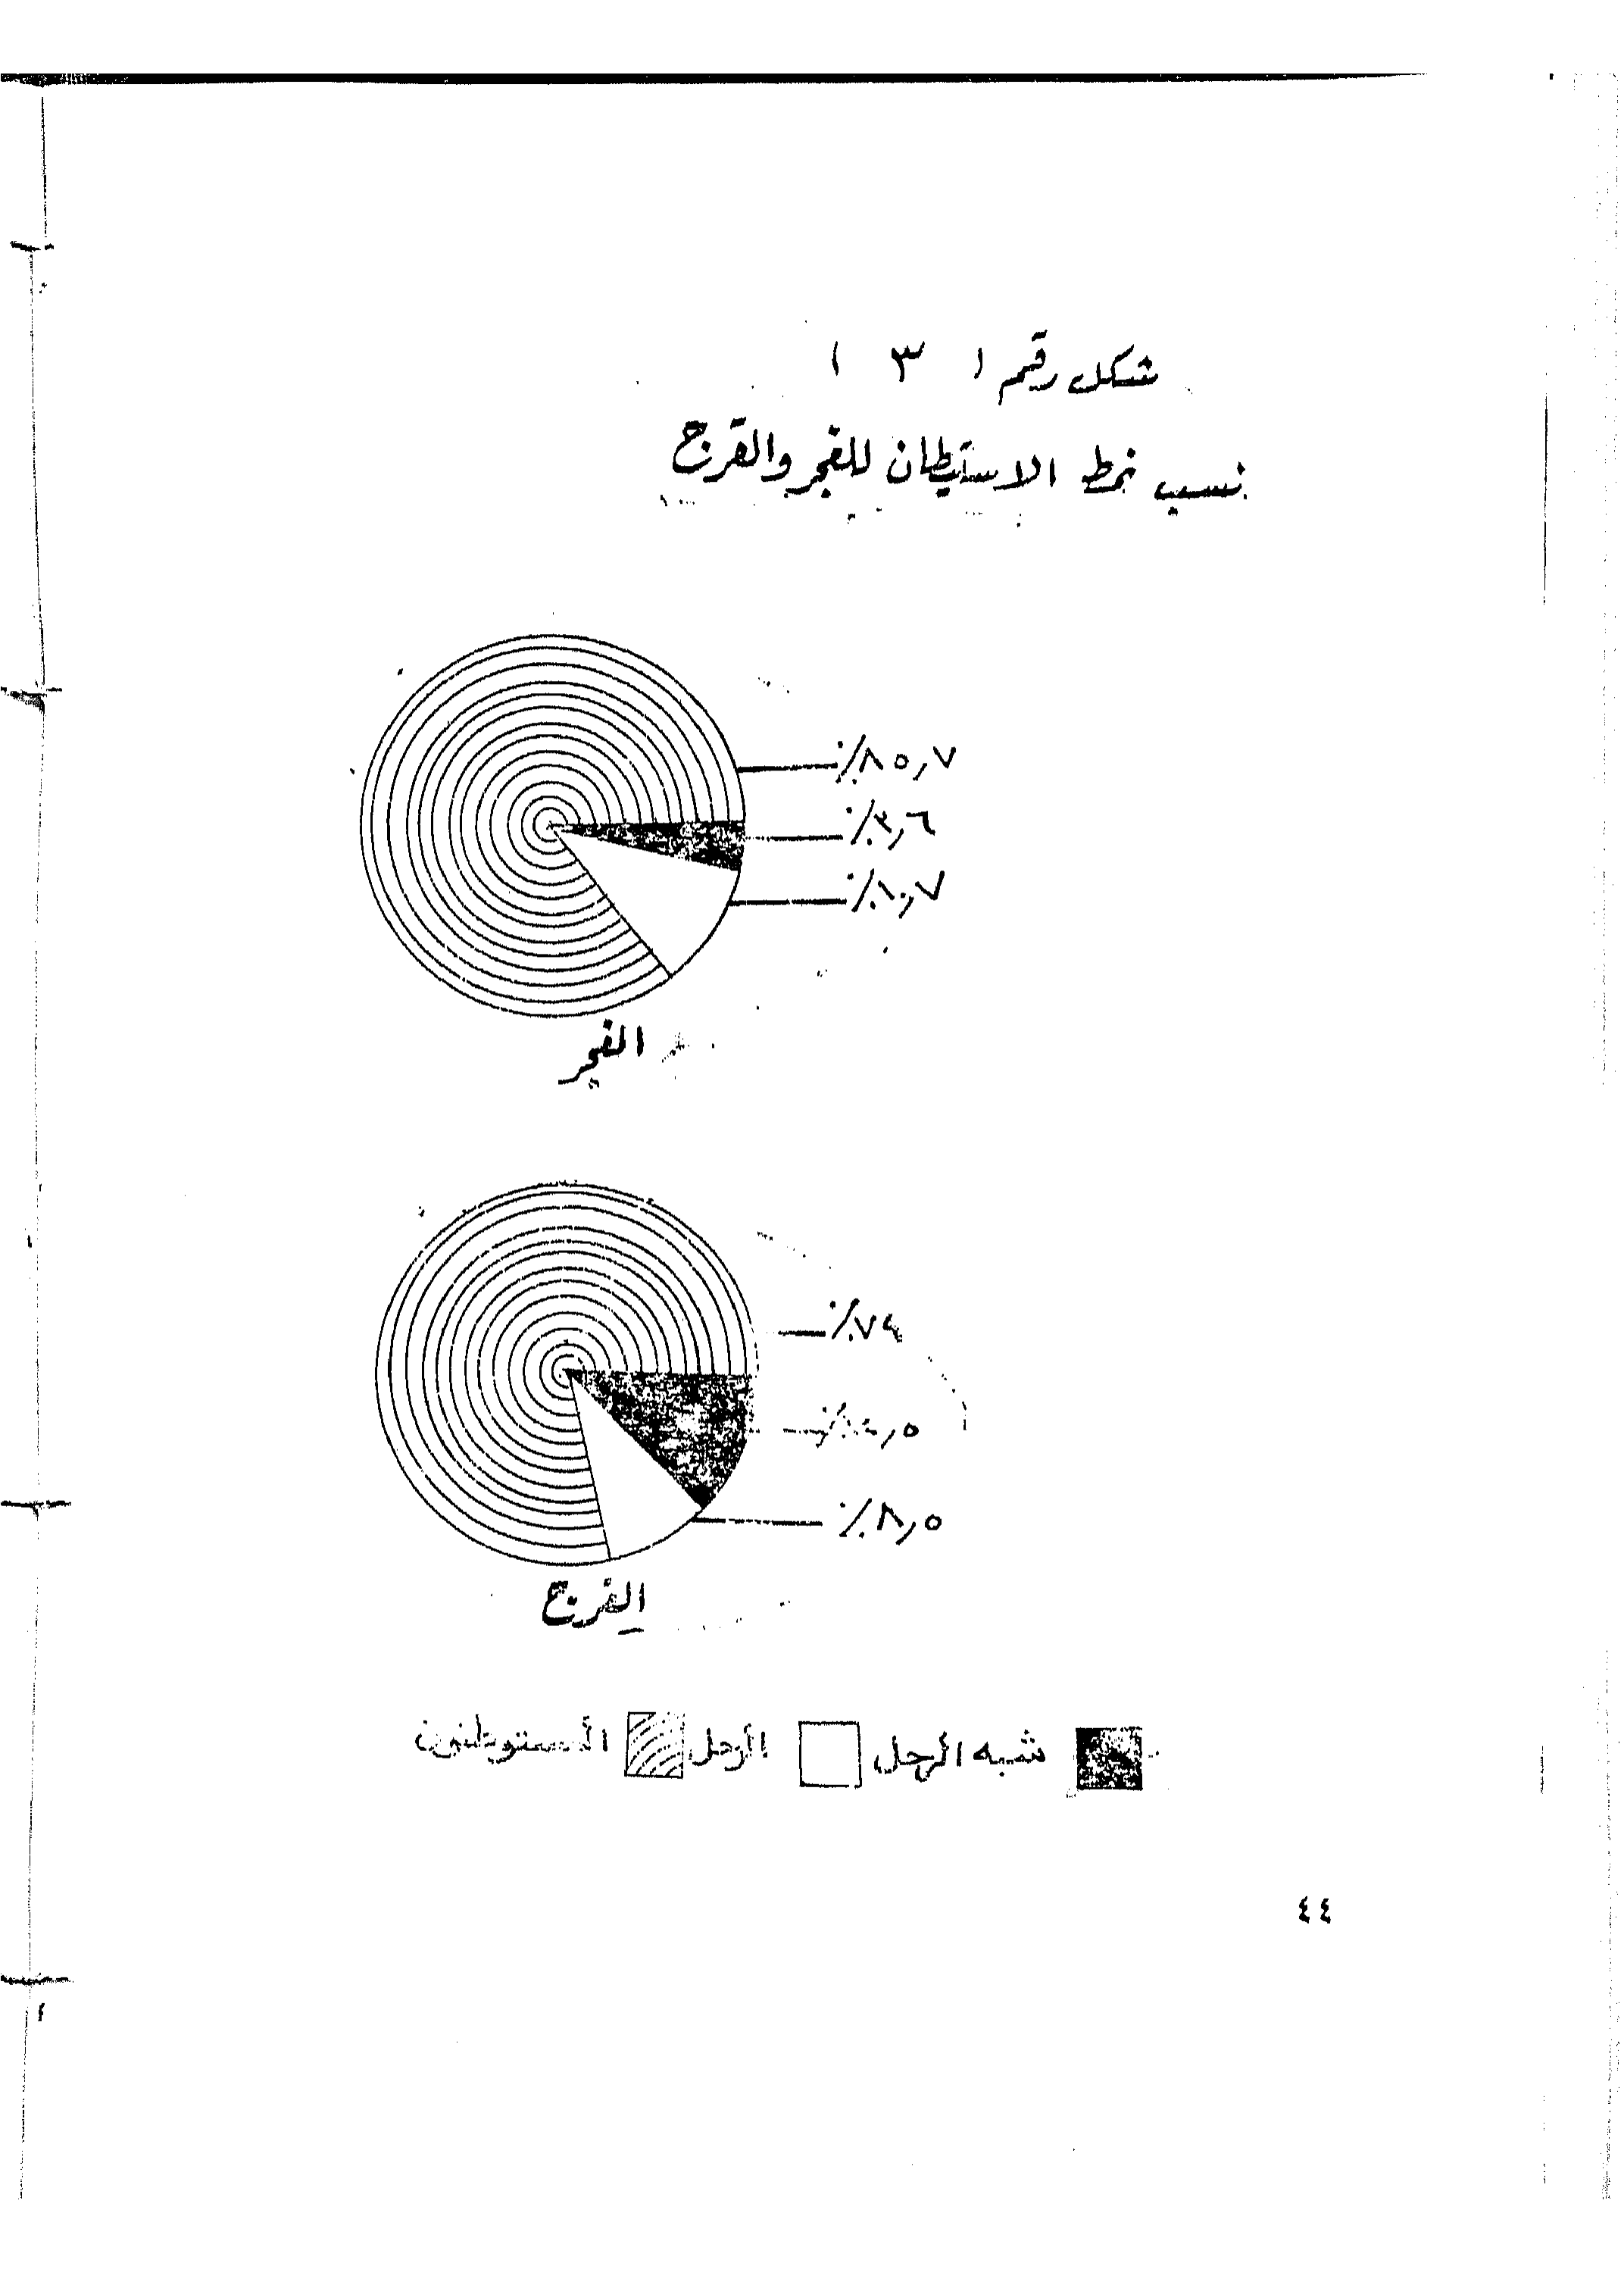 شكل رقم ( ٣ )
نسب نمط الاستيطان للغجر والقرج
٪٨٥,٧
٪٣,٦
٪١٠,٧
الغجر
٪٧٤
٪٨,٥
القرج
شبه الرحل الرحل المستوطنون
٤٤